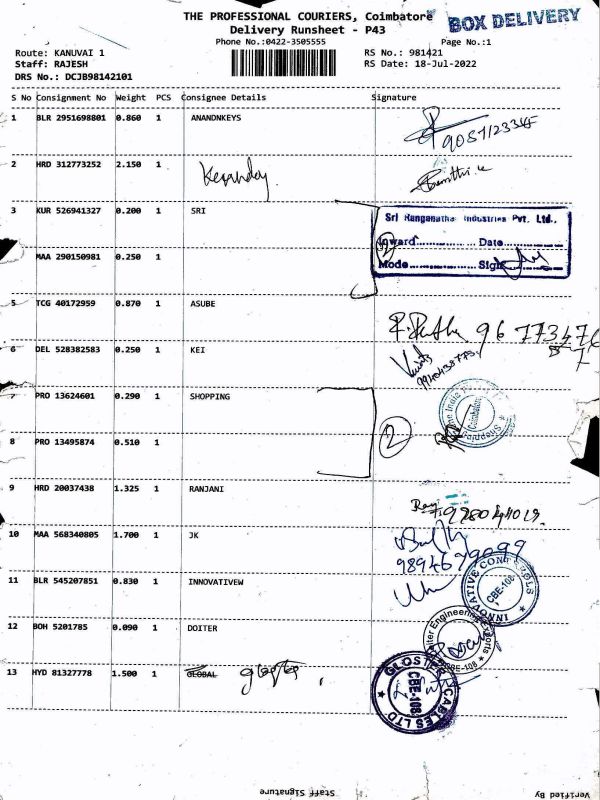 THE PROFESSIONAL COURIERS, Coimbatore
BOX DELIVERY
Delivery Runsheet - P43
Phone No.:0422-3505555
Page No.:1
Route: KANUVAI 1
RS No.: 981421
Staff: RAJESH
RS Date: 18-Jul-2022
DRS No.: DCJB98142101
S No Consignment No Weight PCS Consignee Details Signature
1 BLR 2951698801 0.860 1 ANANDNKEYS
2 HRD 312773252 2.150 1
3 KUR 526941327 0.200 1 SRI
Sri Ranganathar Industries Pvt. Ltd.,
Inward............... Date...............
MAA 290150981 0.250 1
Mode............... Sign...............
5 TCG 40172959 0.870 1 ASUBE
6 DEL 528382583 0.250 1 KEI
7 PRO 13624601 0.290 1 SHOPPING
8 PRO 13495874 0.510 1
2
9 HRD 20037438 1.325 1 RANJANI
10 MAA 568340805 1.700 1 JK
9894679099
11 BLR 545207851 0.830 1 INNOVATIVEW
INNOVATIVE CONTROLS
CBE-108
12 BOH 5201785 0.090 1 DOITER
13 HYD 81327778 1.500 1 GLOBAL
CABLES LTD
CBE-108
Staff Signature
Verified By